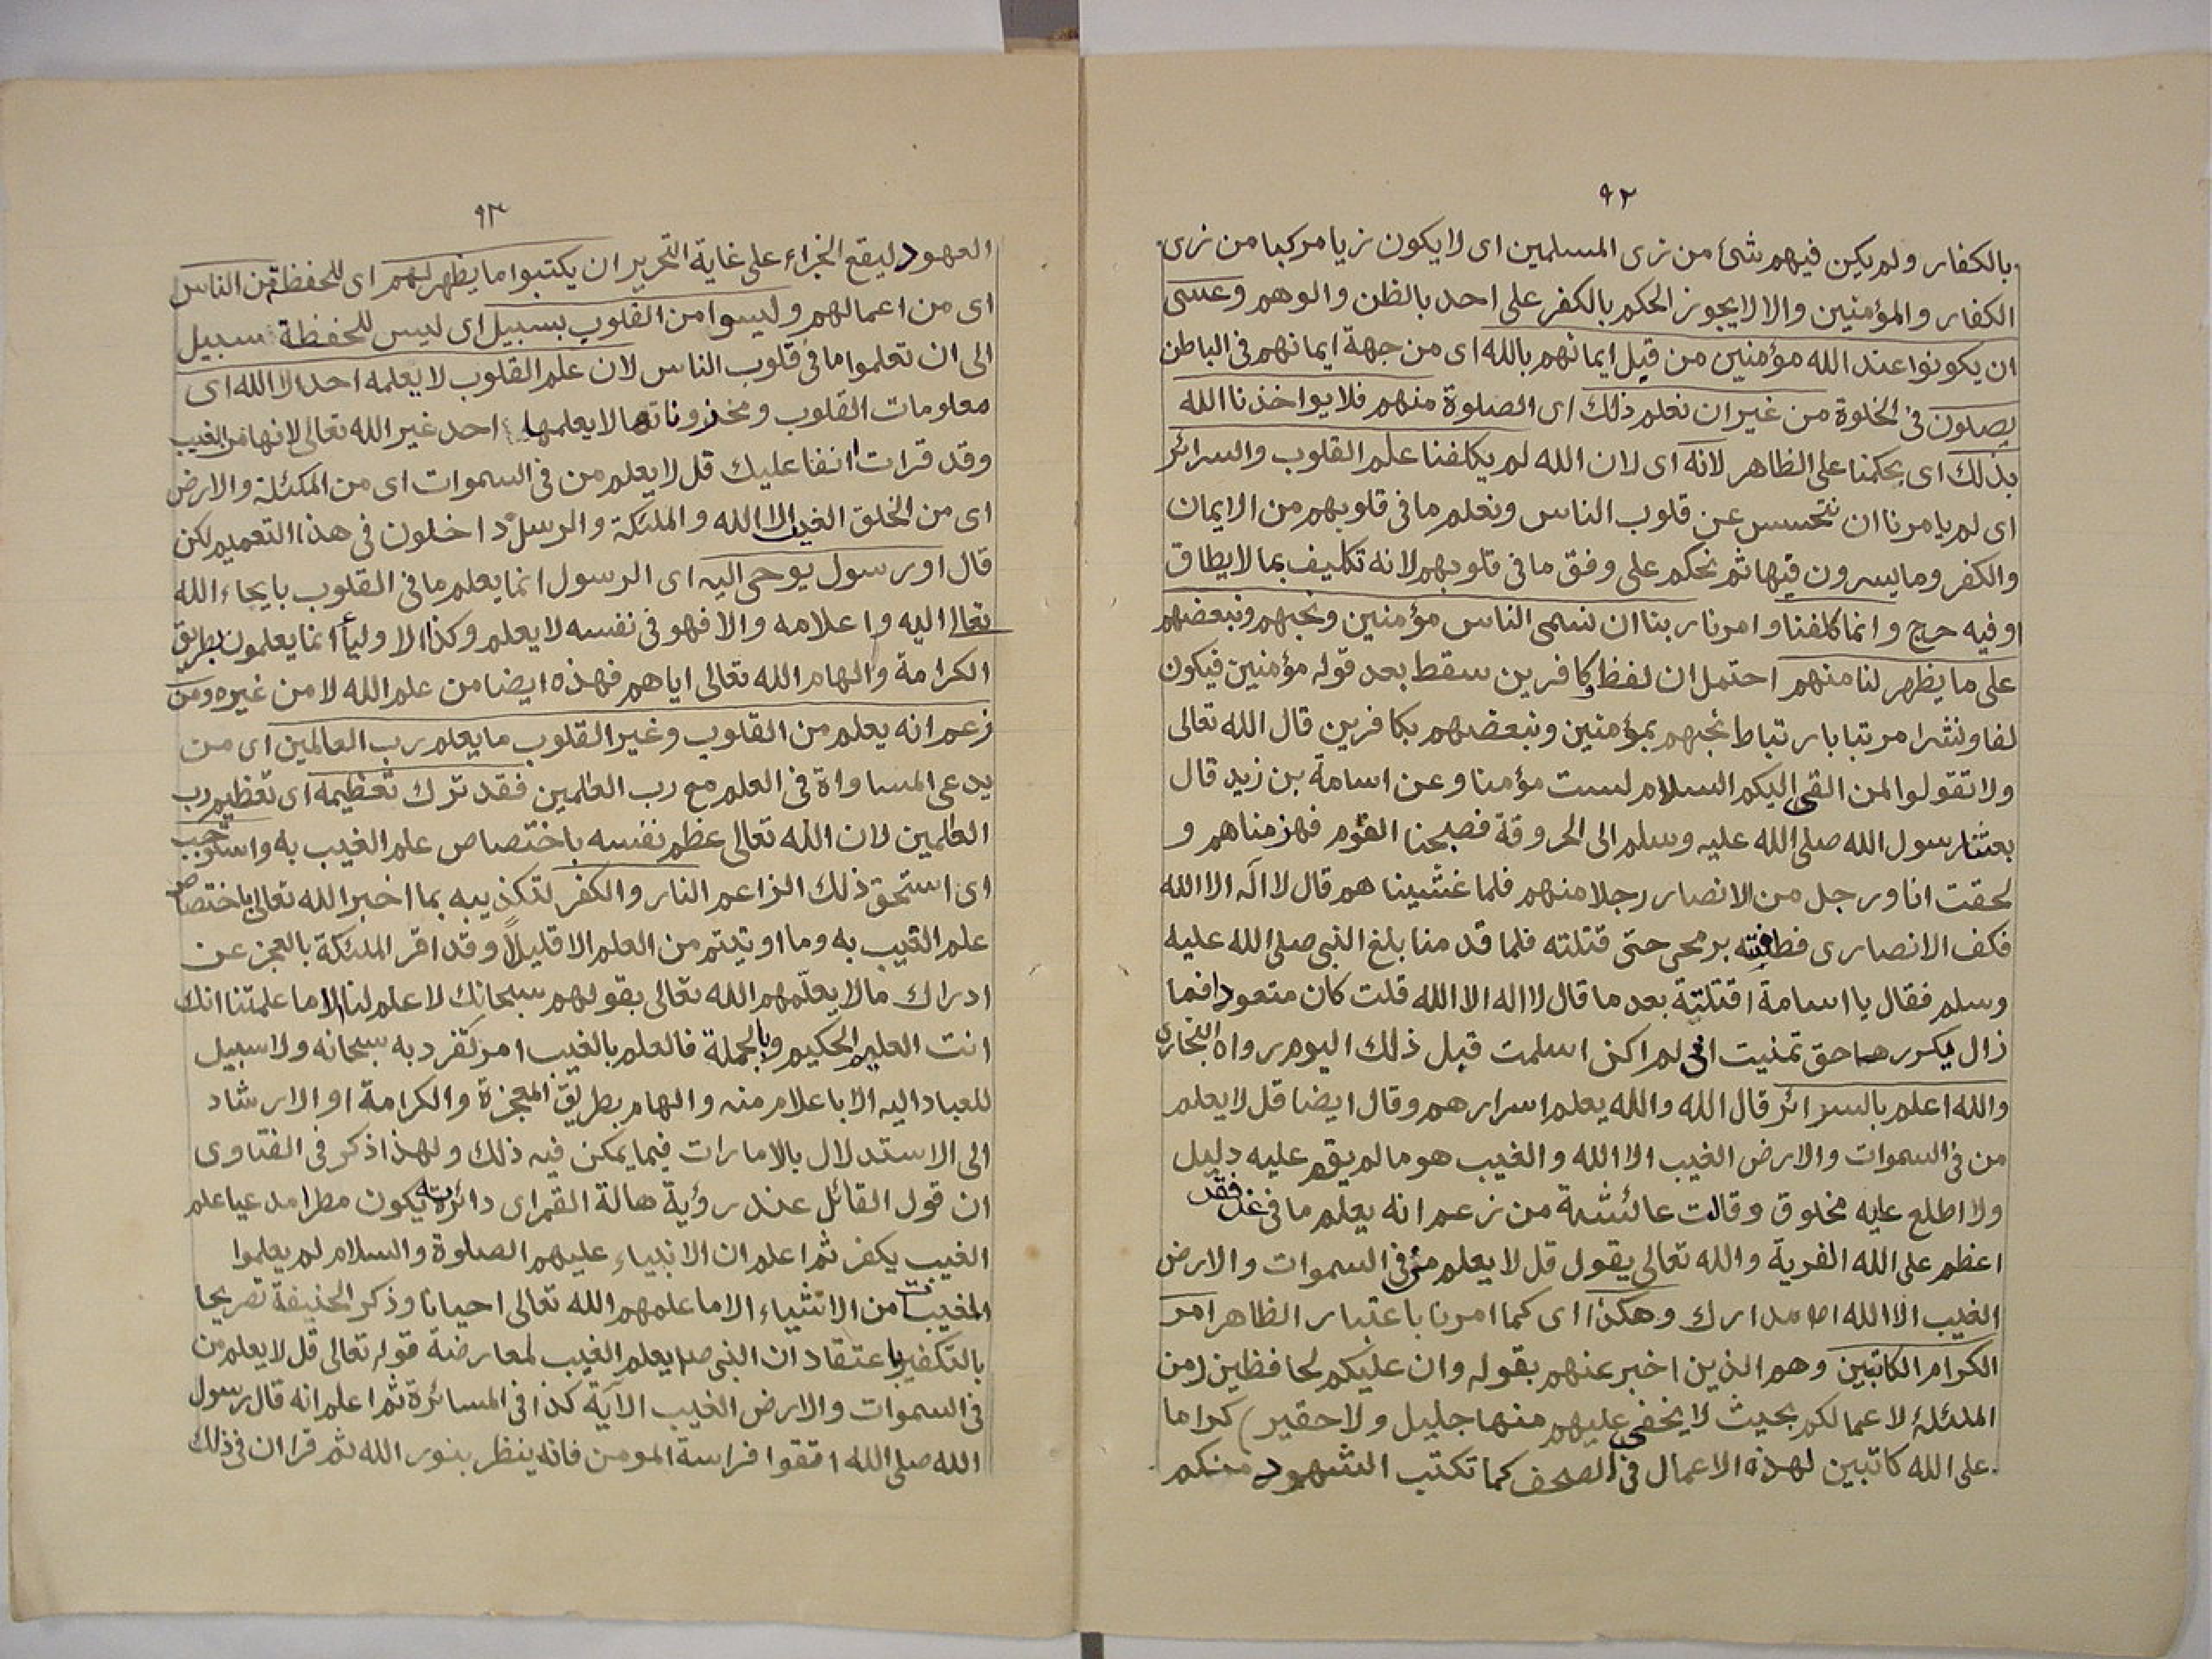 ٩٢
بالكفار ولم يكن فيهم شئ من زى المسلمين اى لا يكون زيا مركبا من زى
الكفار والمؤمنين والا لا يجوز الحكم بالكفر على احد بالظن والوهم وعسى
ان يكونوا عند الله مؤمنين من قبل ايمانهم بالله اى من جهة ايمانهم فى الباطن
يصلون فى الخلوة من غير ان نعلم ذلك اى الصلوة منهم فلا يواخذنا الله
بذلك اى بحكمنا على الظاهر لانه اى لان الله لم يكلفنا علم القلوب والسرائر
اى لم يامرنا ان نتجسس عن قلوب الناس ونعلم ما فى قلوبهم من الايمان
والكفر وما يسرون فيها ثم نحكم على وفق ما فى قلوبهم لانه تكليف بما لا يطاق
او فيه حرج وانما كلفنا وامرنا ربنا ان نسمى الناس مؤمنين ونحبهم ونبغضهم
على ما يظهر لنا منهم احتمل ان لفظ وكافرين سقط بعد قوله مؤمنين فيكون
لفا ونشرا مرتبا بارتباط نحبهم بمؤمنين ونبغضهم بكافرين قال الله تعالى
ولا تقولوا لمن القى اليكم السلام لست مؤمنا وعن اسامة بن زيد قال
بعثنا رسول الله صلى الله عليه وسلم الى الحروقة فصبحنا القوم فهزمناهم و
لحقت انا ورجل من الانصار رجلا منهم فلما غشيناهم قال لا اله الا الله
فكف الانصارى فطعنته برمحى حتى قتلته فلما قدمنا بلغ النبى صلى الله عليه
وسلم فقال يا اسامة اقتلته بعد ما قال لا اله الا الله قلت كان متعودا فما
زال يكررها حق تمنيت انى لم اكن اسلمت قبل ذلك اليوم رواه البخارى
والله اعلم بالسرائر قال الله والله يعلم اسرارهم وقال ايضا قل لا يعلم
من فى السموات والارض الغيب الا الله والغيب هو ما لم يقم عليه دليل
ولا اطلع عليه مخلوق وقالت عائشة من زعم انه يعلم ما فى غد فقد
اعظم على الله الفرية والله تعالى يقول قل لا يعلم من فى السموات والارض
الغيب الا الله اه مدارك وهكذا اى كما امرنا باعتبار الظاهر امر
الكرام الكاتبين وهم الذين اخبر عنهم بقوله وان عليكم لحافظين (من
الملئكة لاعمالكم بحيث لا يخفى عليهم منها جليل ولا حقير) كراما
على الله كاتبين لهذه الاعمال فى الصحف كما تكتب الشهود منكم
٩٣
العهود ليقع الجزاء على غاية التحرير ان يكتبوا ما يظهر لهم اى للحفظة من الناس
اى من اعمالهم وليسوا من القلوب بسبيل اى ليس للحفظة سبيل
الى ان تعلموا ما فى قلوب الناس لان علم القلوب لا يعلمه احد الا الله اى
معلومات القلوب ومخذوناتها لا يعلمها احد غير الله تعالى لانها من الغيب
وقد قرات انفا عليك قل لا يعلم من فى السموات اى من الملئكة والارض
اى من الخلق الغيب الا الله والملئكة والرسل داخلون فى هذا التعميم لكن
قال او رسول يوحى اليه اى الرسول انما يعلم ما فى القلوب بايحاء الله
تعالى اليه واعلامه والا فهو فى نفسه لا يعلم وكذا الاوليأ انما يعلمون بطريق
الكرامة والهام الله تعالى اياهم فهذه ايضا من علم الله لا من غيره ومن
زعم انه يعلم من القلوب وغير القلوب ما يعلم رب العالمين اى من
يدعى المساواة فى العلم مع رب العلمين فقد ترك تعظيمه اى تعظيم رب
العلمين لان الله تعالى عظم نفسه باختصاص علم الغيب به واستوجب
اى استحق ذلك الزاعم النار والكفر لتكذيبه بما اخبر الله تعالى باختصاص
علم الغيب به وما اوتيتم من العلم الا قليلاً وقد اقر الملئكة بالعجز عن
ادراك ما لا يعلّمهم الله تعالى بقولهم سبحانك لا علم لنا الا ما علمتنا انك
انت العليم الحكيم وبالجملة فالعلم بالغيب امر تفرد به سبحانه ولا سبيل
للعباد اليه الا باعلام منه والهام بطريق المعجزة والكرامة او الارشاد
الى الاستدلال بالامارات فيما يمكن فيه ذلك ولهذا ذكر فى الفتاوى
ان قول القائل عند رؤية هالة القمر اى دائرته يكون مطرا مدعيا علم
الغيب يكفر ثم اعلم ان الانبياء عليهم الصلوة والسلام لم يعلموا
المغيبات من الاشياء الا ما علمهم الله تعالى احيانا وذكر الحنيفة تصريحا
بالتكفير باعتقاد ان النبى صلم يعلم الغيب لمعارضة قوله تعالى قل لا يعلم من
فى السموات والارض الغيب الآية كذا فى المسائرة ثم اعلم انه قال رسول
الله صلى الله اتقوا فراسة المومن فانه ينظر بنور الله ثم قرا ان فى ذلك